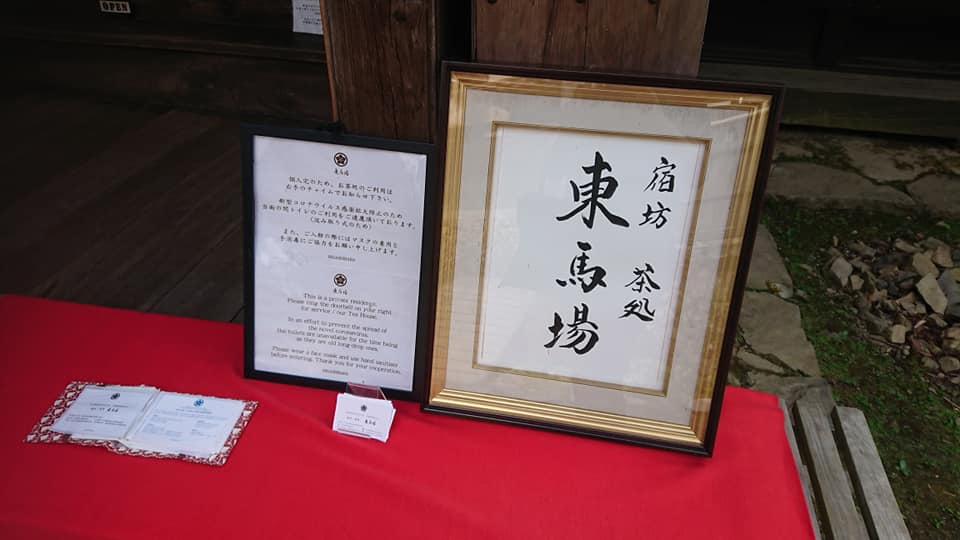 OPEN
東馬場
個人宅のため、お茶処のご利用は
右手のチャイムでお知らせ下さい。
新型コロナウイルス感染拡大防止のため
当面の間トイレのご利用をご遠慮頂いております。
(汲み取り式のため)
また、ご入館の際にはマスクの着用と
手消毒にご協力をお願い申し上げます。
東馬場
This is a private residence.
Please ring the doorbell on your right
for service / our Tea House.
In an effort to prevent the spread of
the novel coronavirus,
the toilets are unavailable for the time being
as they are old long-drop ones.
Please wear a face mask and use hand sanitiser
before entering. Thank you for your cooperation.
宿坊 茶処
東馬場
東馬場